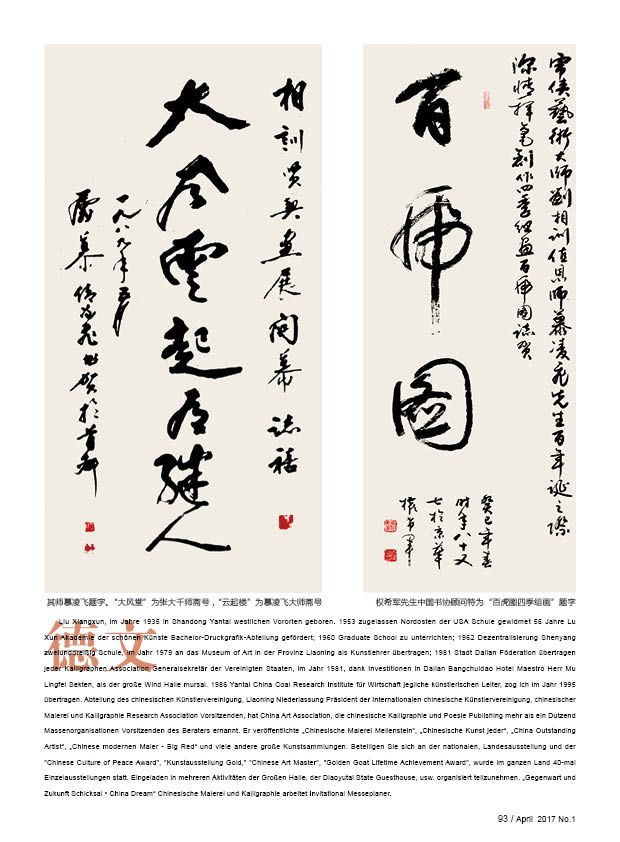 相訓贤契畫展開幕誌禧
大风雲起有继人
一九八九年五月
百虎图
藝術大师劉相训值恩师慕凌飛先生百年诞之際
深情挥毫創作四季组畫百虎图誌贺
癸巳年春
时年八十又
七於京華
權希軍
其师慕凌飞题字。“大风堂”为张大千师斋号，“云起楼”为慕凌飞大师斋号
权希军先生中国书协顾问特为“百虎图四季组画”题字
德文
Liu Xiangxun, im Jahre 1935 in Shandong Yantai westlichen Vororten geboren. 1953 zugelassen Nordosten der USA Schule gewidmet 56 Jahre Lu
Xun Akademie der schönen Künste Bachelor-Druckgrafik-Abteilung gefördert; 1960 Graduate School zu unterrichten; 1962 Dezentralisierung Shenyang
zweiunddreißig Schule, im Jahr 1979 an das Museum of Art in der Provinz Liaoning als Kunstlehrer übertragen; 1981 Stadt Dalian Föderation übertragen
jeder Kalligraphen Association Generalsekretär der Vereinigten Staaten, im Jahr 1981, dank Investitionen in Dalian Bangchuidao Hotel Maestro Herr Mu
Lingfei Sekten, als der große Wind Halle mursal. 1986 Yantai China Coal Research Institute für Wirtschaft jegliche künstlerischen Leiter, zog ich im Jahr 1995
übertragen. Abteilung des chinesischen Künstlervereinigung, Liaoning Niederlassung Präsident der internationalen chinesische Künstlervereinigung, chinesischer
Malerei und Kalligraphie Research Association Vorsitzenden, hat China Art Association, die chinesische Kalligraphie und Poesie Publishing mehr als ein Dutzend
Massenorganisationen Vorsitzenden des Beraters ernannt. Er veröffentlichte „Chinesische Malerei Meilenstein“, „Chinesische Kunst jeder“, „China Outstanding
Artist“, „Chinese modernen Maler - Big Red“ und viele andere große Kunstsammlungen. Beteiligen Sie sich an der nationalen, Landesausstellung und der
“Chinese Culture of Peace Award”, “Kunstausstellung Gold,” “Chinese Art Master”, “Golden Goat Lifetime Achievement Award”, wurde im ganzen Land 40-mal
Einzelausstellungen statt. Eingeladen in mehreren Aktivitäten der Großen Halle, der Diaoyutai State Guesthouse, usw. organisiert teilzunehmen. „Gegenwart und
Zukunft Schicksal • China Dream“ Chinesische Malerei und Kalligraphie arbeitet Invitational Messeplaner.
93 / April 2017 No.1